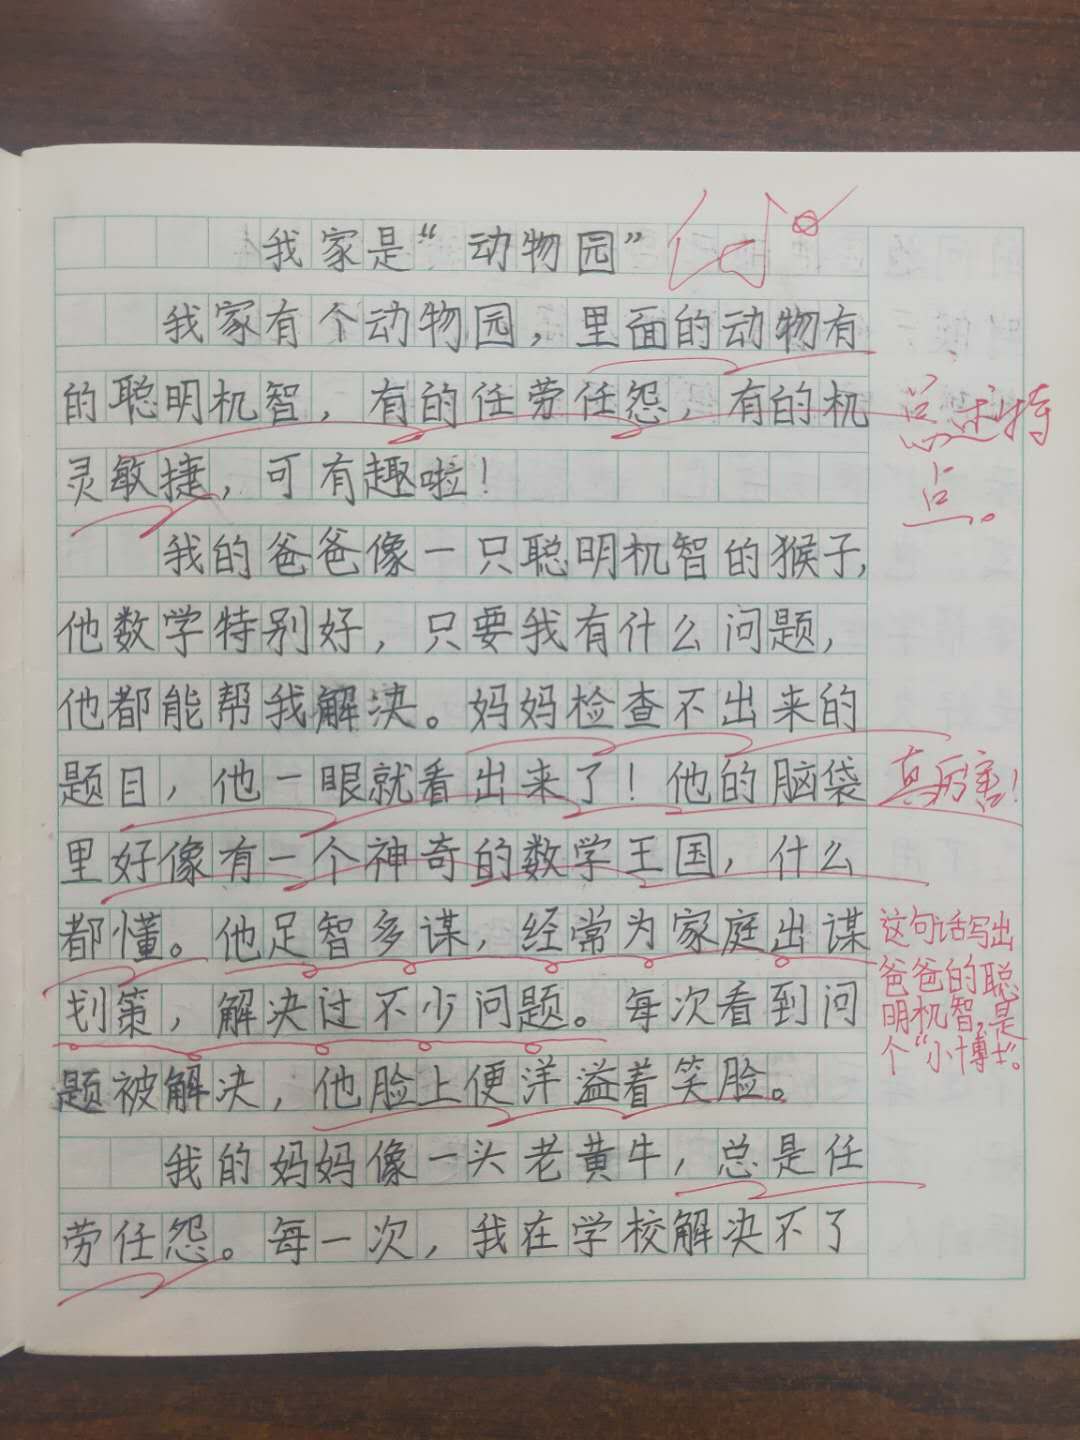 我家是“动物园”
我家有个动物园，里面的动物有
的聪明机智，有的任劳任怨，有的机
灵敏捷，可有趣啦！
总述特
点。
我的爸爸像一只聪明机智的猴子，
他数学特别好，只要我有什么问题，
他都能帮我解决。妈妈检查不出来的
题目，他一眼就看出来了！他的脑袋
真厉害！
里好像有一个神奇的数学王国，什么
都懂。他足智多谋，经常为家庭出谋
划策，解决过不少问题。每次看到问
题被解决，他脸上便洋溢着笑脸。
这句话写出
爸爸的聪
明机智，是
个“小博士”。
我的妈妈像一头老黄牛，总是任
劳任怨。每一次，我在学校解决不了